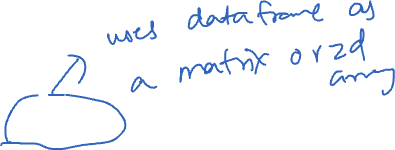 uses dataframe as
a matrix or 2d
array